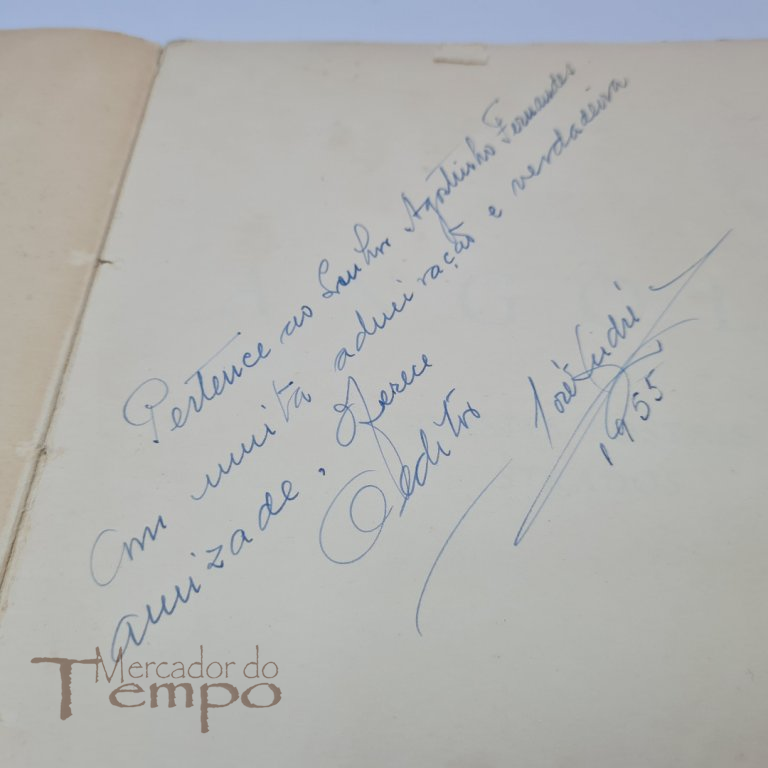 Pertence ao Senhor Agostinho Fernandes
Com muita admiração e verdadeira
amizade, Oferece
O editor
José André
1955
Mercador do
Tempo